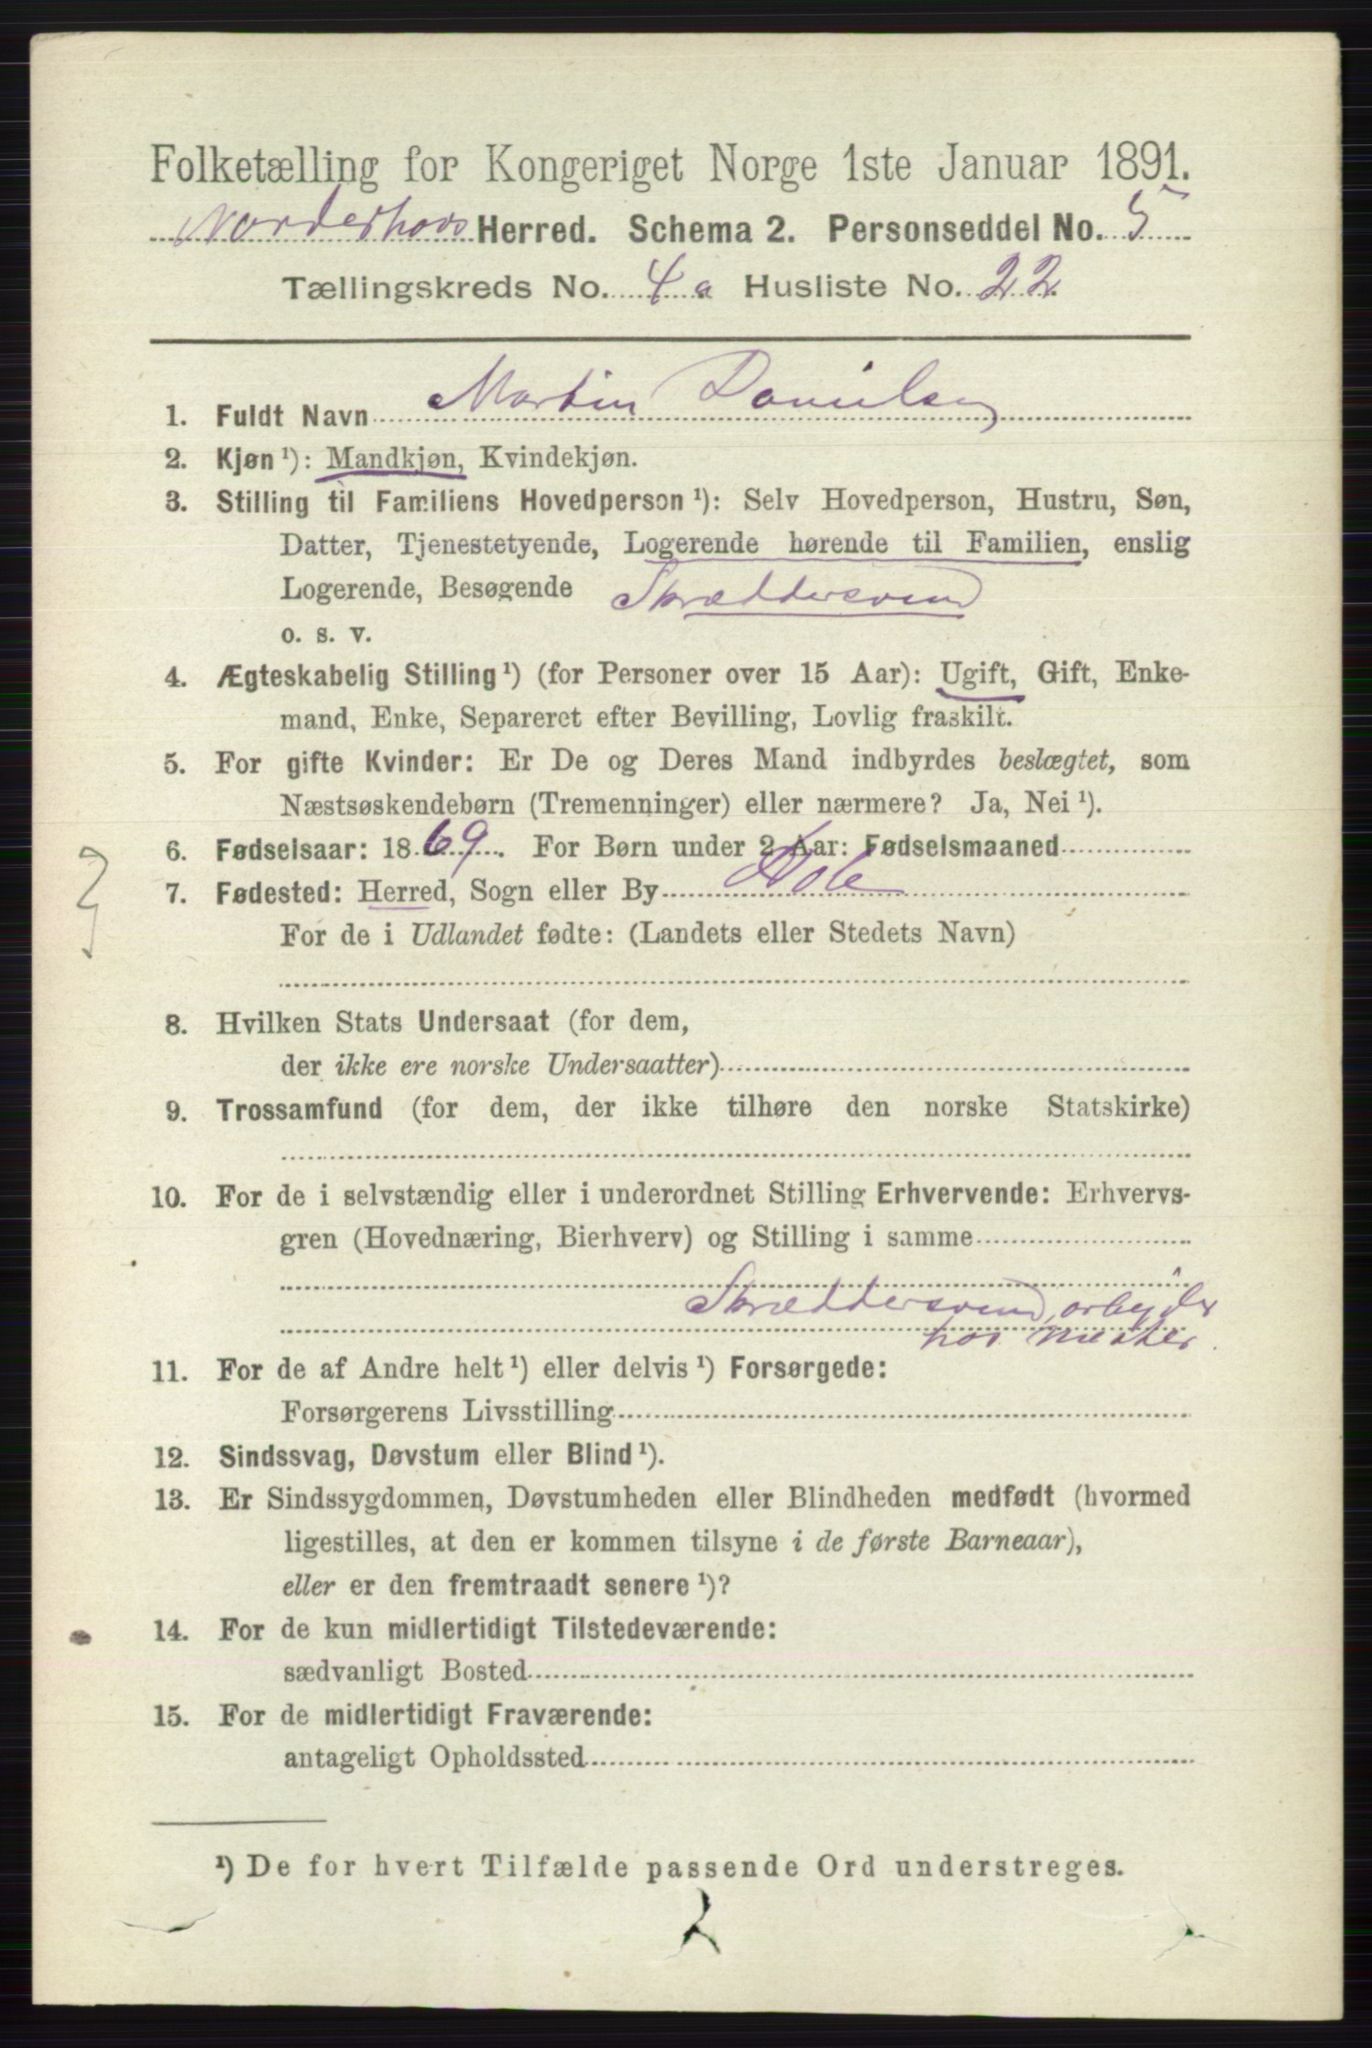 Folketælling for Kongeriget Norge 1ste Januar 1891.
Norderhovs Herred. Schema 2. Personseddel No. 5
Tællingskreds No. 4a Husliste No. 22
1. Fuldt Navn Martin Danielsen
2. Kjøn ¹): Mandkjøn, Kvindekjøn.
3. Stilling til Familiens Hovedperson ¹): Selv Hovedperson, Hustru, Søn,
Datter, Tjenestetyende, Logerende hørende til Familien, enslig
Logerende, Besøgende Skræddersvend
o. s. v.
4. Ægteskabelig Stilling ¹) (for Personer over 15 Aar): Ugift, Gift, Enke-
mand, Enke, Separeret efter Bevilling, Lovlig fraskilt.
5. For gifte Kvinder: Er De og Deres Mand indbyrdes beslægtet, som
Næstsøskendebørn (Tremenninger) eller nærmere? Ja, Nei ¹).
6. Fødselsaar: 1869. For Børn under 2 Aar: Fødselsmaaned
7. Fødested: Herred, Sogn eller By Hole
For de i Udlandet fødte: (Landets eller Stedets Navn)
8. Hvilken Stats Undersaat (for dem,
der ikke ere norske Undersaatter)
9. Trossamfund (for dem, der ikke tilhøre den norske Statskirke)
10. For de i selvstændig eller i underordnet Stilling Erhvervende: Erhvervs-
gren (Hovednæring, Bierhverv) og Stilling i samme
Skræddersvend, arbejder
hos Mester.
11. For de af Andre helt ¹) eller delvis ¹) Forsørgede:
Forsørgerens Livsstilling
12. Sindssvag, Døvstum eller Blind ¹).
13. Er Sindssygdommen, Døvstumheden eller Blindheden medfødt (hvormed
ligestilles, at den er kommen tilsyne i de første Barneaar),
eller er den fremtraadt senere ¹)?
14. For de kun midlertidigt Tilstedeværende:
sædvanligt Bosted
15. For de midlertidigt Fraværende:
antageligt Opholdssted
¹) De for hvert Tilfælde passende Ord understreges.